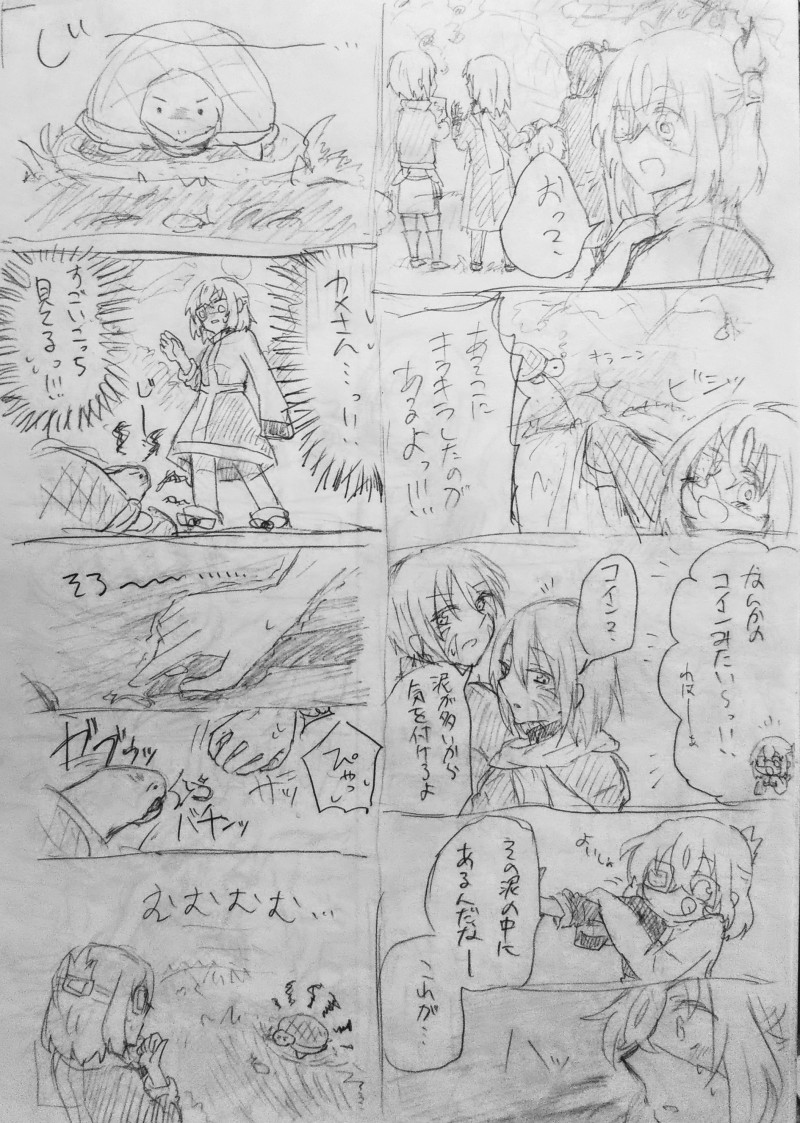 おっ?、
あそこに
キラキラしたのが
あるよっ!!!
キラーン
ビシッ
なんかの
コインみたいらっ!!
わはーーぁ
コイン?、
泥が多いから
気を付けろよ
よいしょ
その泥の中に
あるんだなー
これが…
じーーー…
カメさん…っ!!
すごいこっち
見てるっ!!!
じーー
そろ〜〜……
ガブゥッ
ガッ
ぴゃっ
バチンッ
むむむむ…